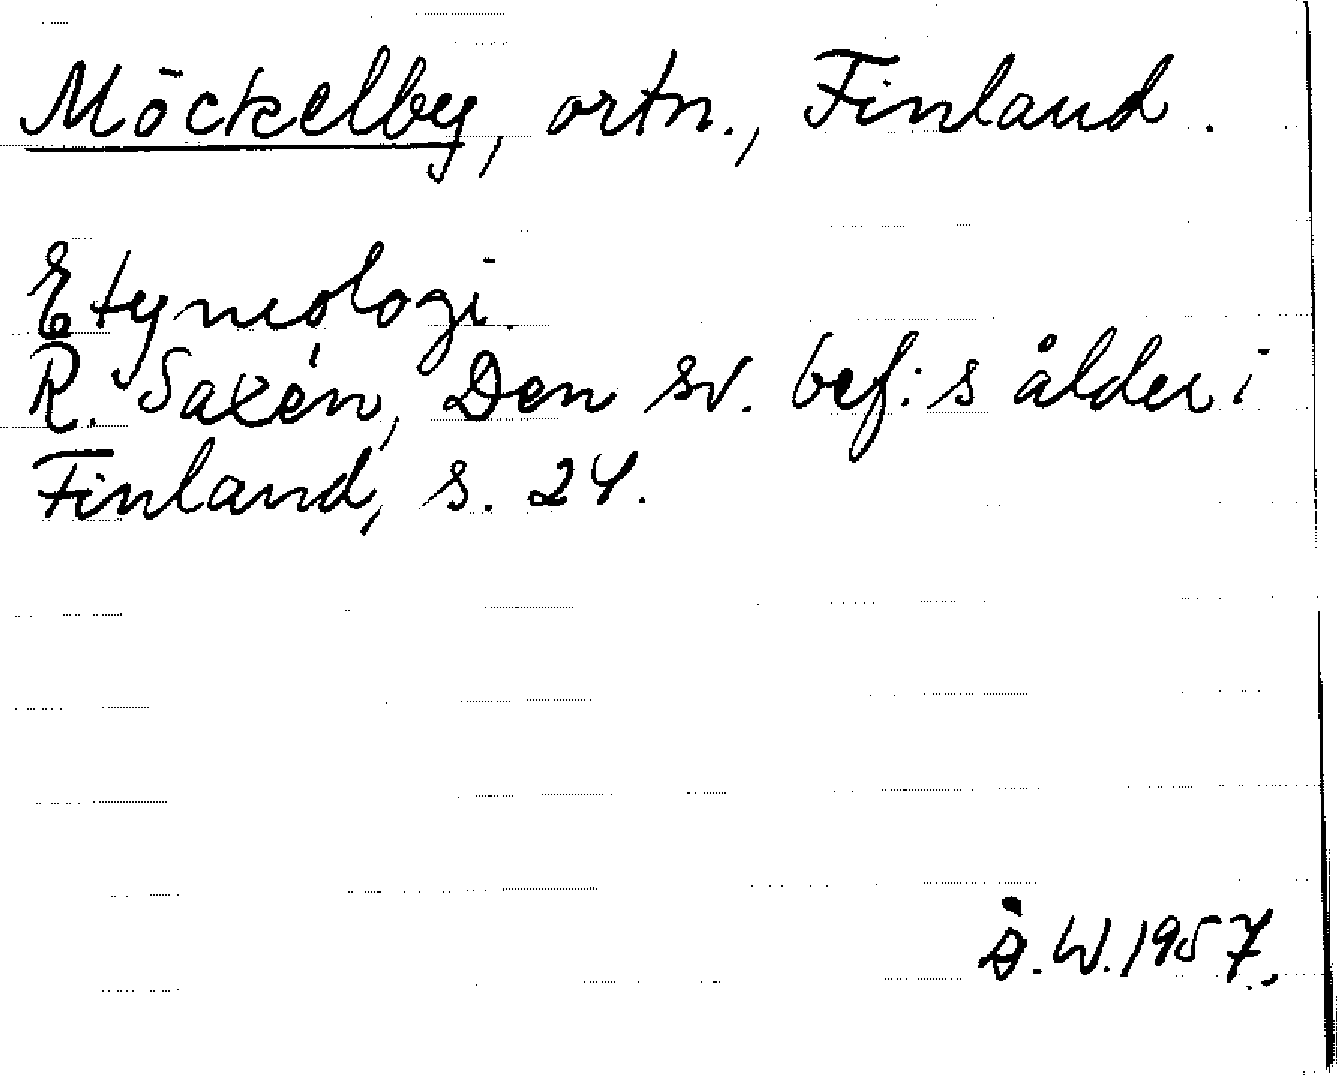 Möckelby, ortn., Finland.
Etymologi.
R. Saxén, Den sv. bef:s ålder i
Finland, s. 24.
Å.W.1957.